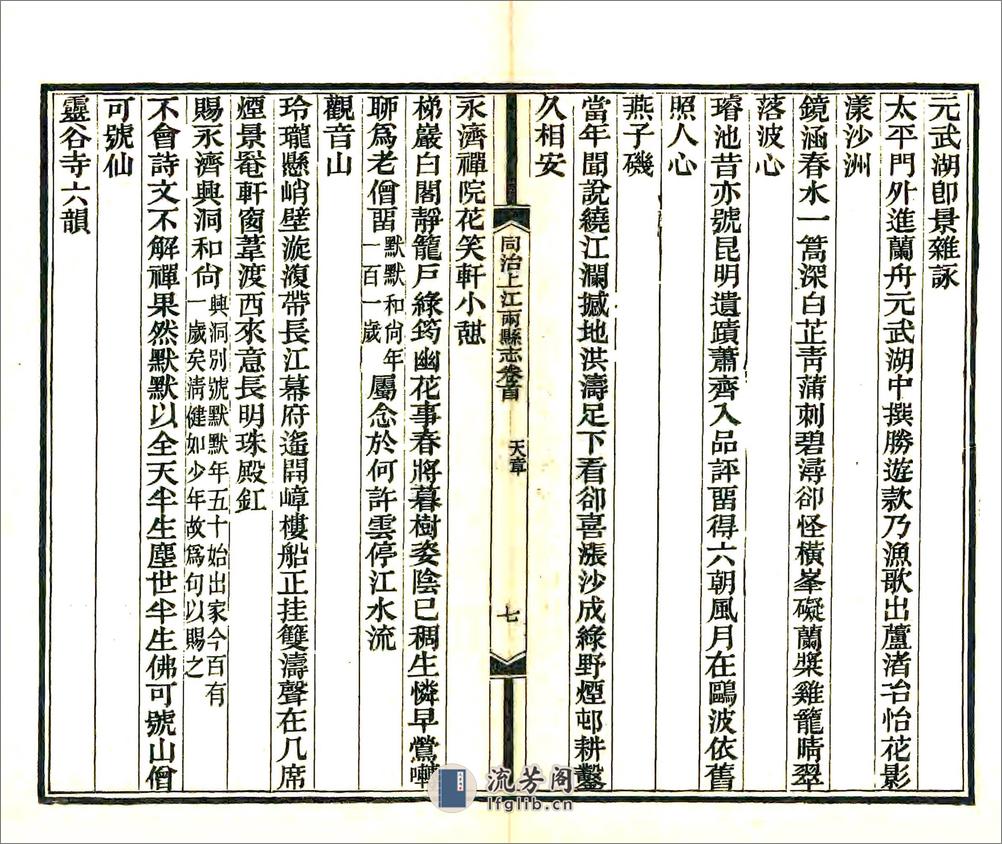 元武湖卽景雜詠
太平門外進蘭舟元武湖中撰勝遊款乃漁歌出蘆渚冶怡花影
漾沙洲
鏡涵春水一篙深白芷靑蒲刺碧潯卻怪橫峯礙蘭槳雞籠晴翠
落波心
璿池昔亦號昆明遺蹟蕭齊入品評畱得六朝風月在鷗波依舊
照人心
燕子磯
當年聞說繞江瀾撼地洪濤足下看卻喜漲沙成綠野煙邨耕鑿
久相安
同治上江兩縣志卷首
天章
七
永濟禪院花笑軒小憇
梯巖白閣靜籠戶綠筠幽花事春將暮樹姿陰已稠生憐早鶯囀
聊爲老僧畱默默和尙年一百一歲屬念於何許雲停江水流
觀音山
玲瓏懸峭壁漩澓帶長江幕府遙開嶂樓船正挂雙濤聲在几席
煙景罨軒窗葦渡西來意長明珠殿釭
賜永濟興洞和尙興洞別號默默年五十始出家今百有一歲矣淸健如少年故爲句以賜之
不會詩文不解禪果然默默以全天半生塵世半生佛可號山僧
可號仙
靈谷寺六韻
流芳阁
lfglib.cn